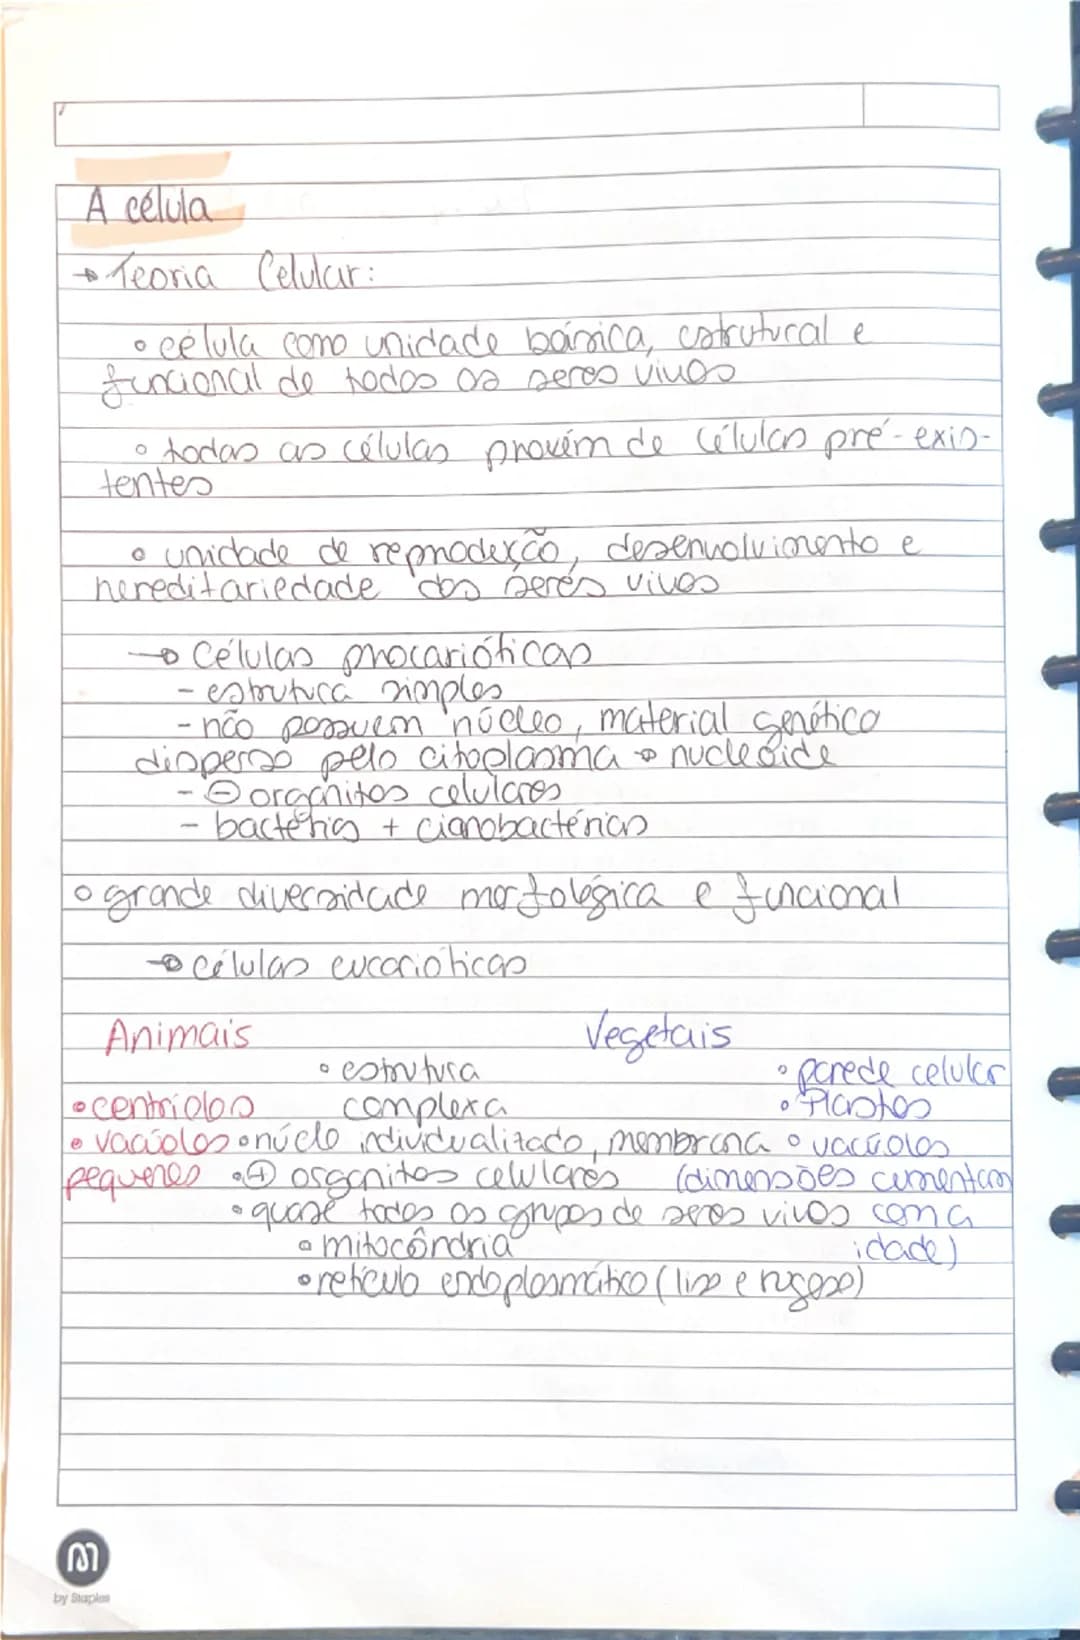 A célula
→ Teoria Celular:
• célula como unidade básica, estrutural e
funcional de todos os seres vivos
• todas as células provém de células pré-exis-
tentes
• unidade de reprodução, desenvolvimento e
hereditariedade dos seres vivos
→ Células procarióticas
- estrutura simples
- não possuem núcleo, material genético
disperso pelo citoplasma → nucleóide
- ⊖ organitos celulares
- bactérias + cianobactérias
• grande diversidade morfológica e funcional
→ células eucarióticas
Animais Vegetais
• estrutura • parede celular
• centríolos complexa • Plastos
• vacúolos • núcleo individualizado, membrana • vacúolos
pequenos • ⊕ organitos celulares (dimensões aumentam
• quase todos os grupos de seres vivos com a
• mitocôndria idade)
• retículo endoplasmático (liso e rugoso)
by Staples